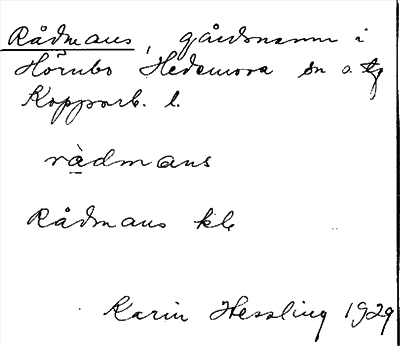 Rådmans, gårdsnamn i
Hörnbo Hedemora sn o. tg
Kopparb. l.
ràdmans
Rådmans kle
Karin Hessling 1929